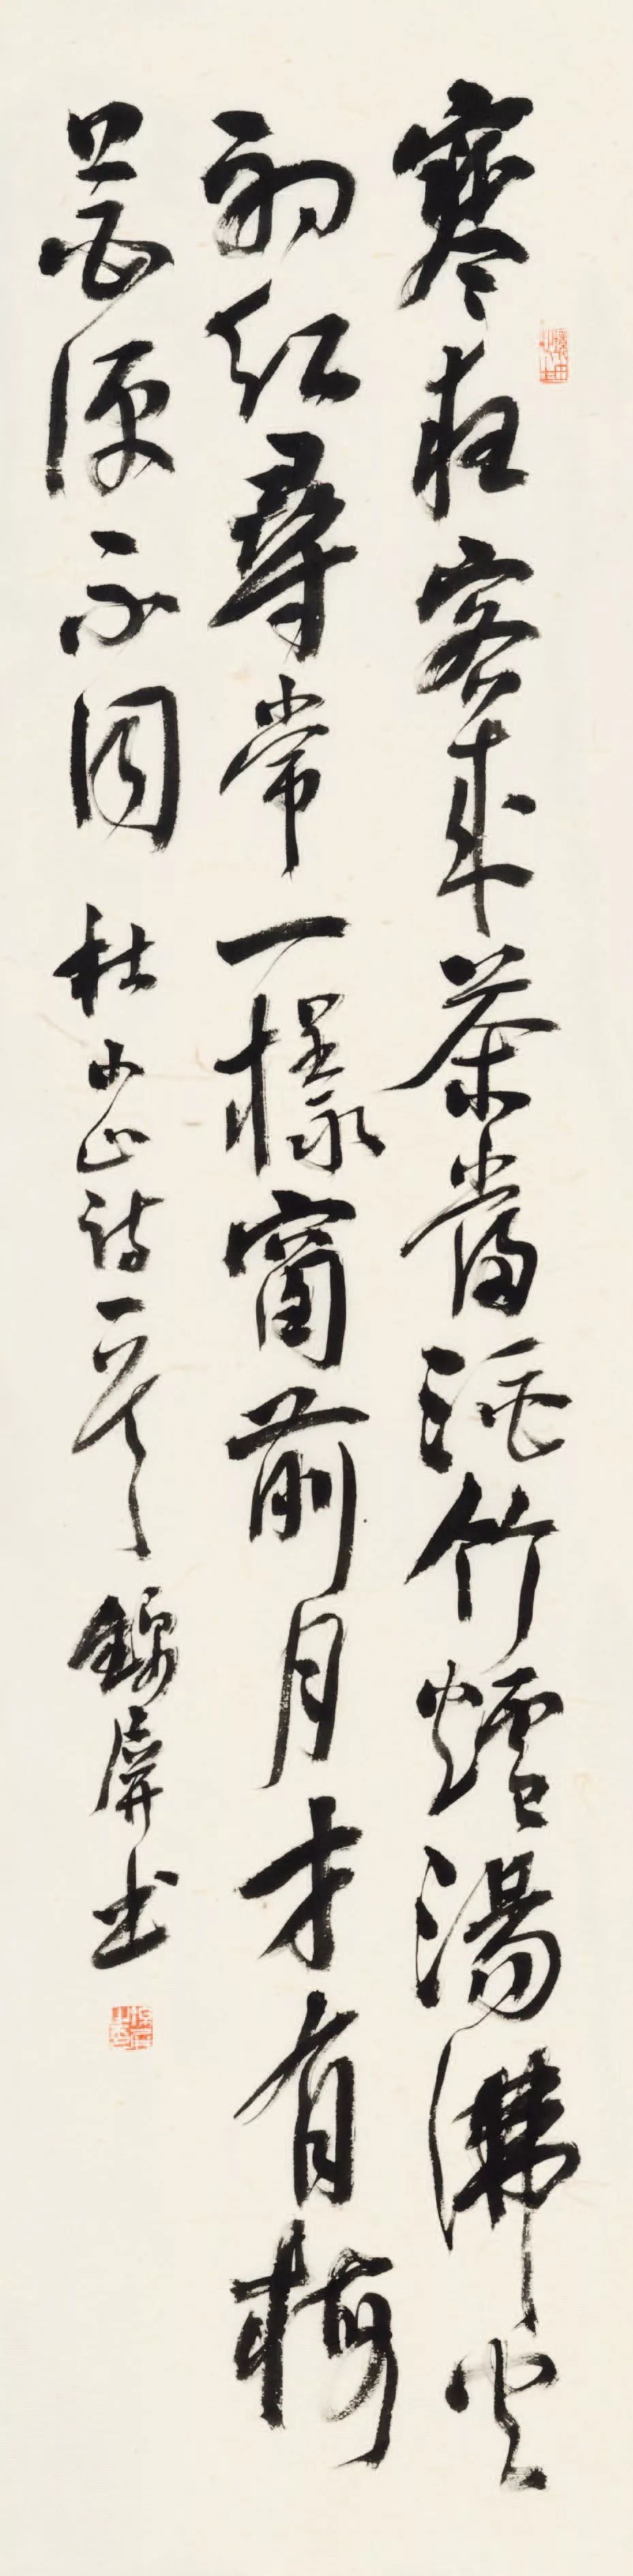 寒夜客來茶當酒竹爐湯沸火
初紅尋常一樣窗前月才有梅
花便不同 杜小山詩一首 錦屏书